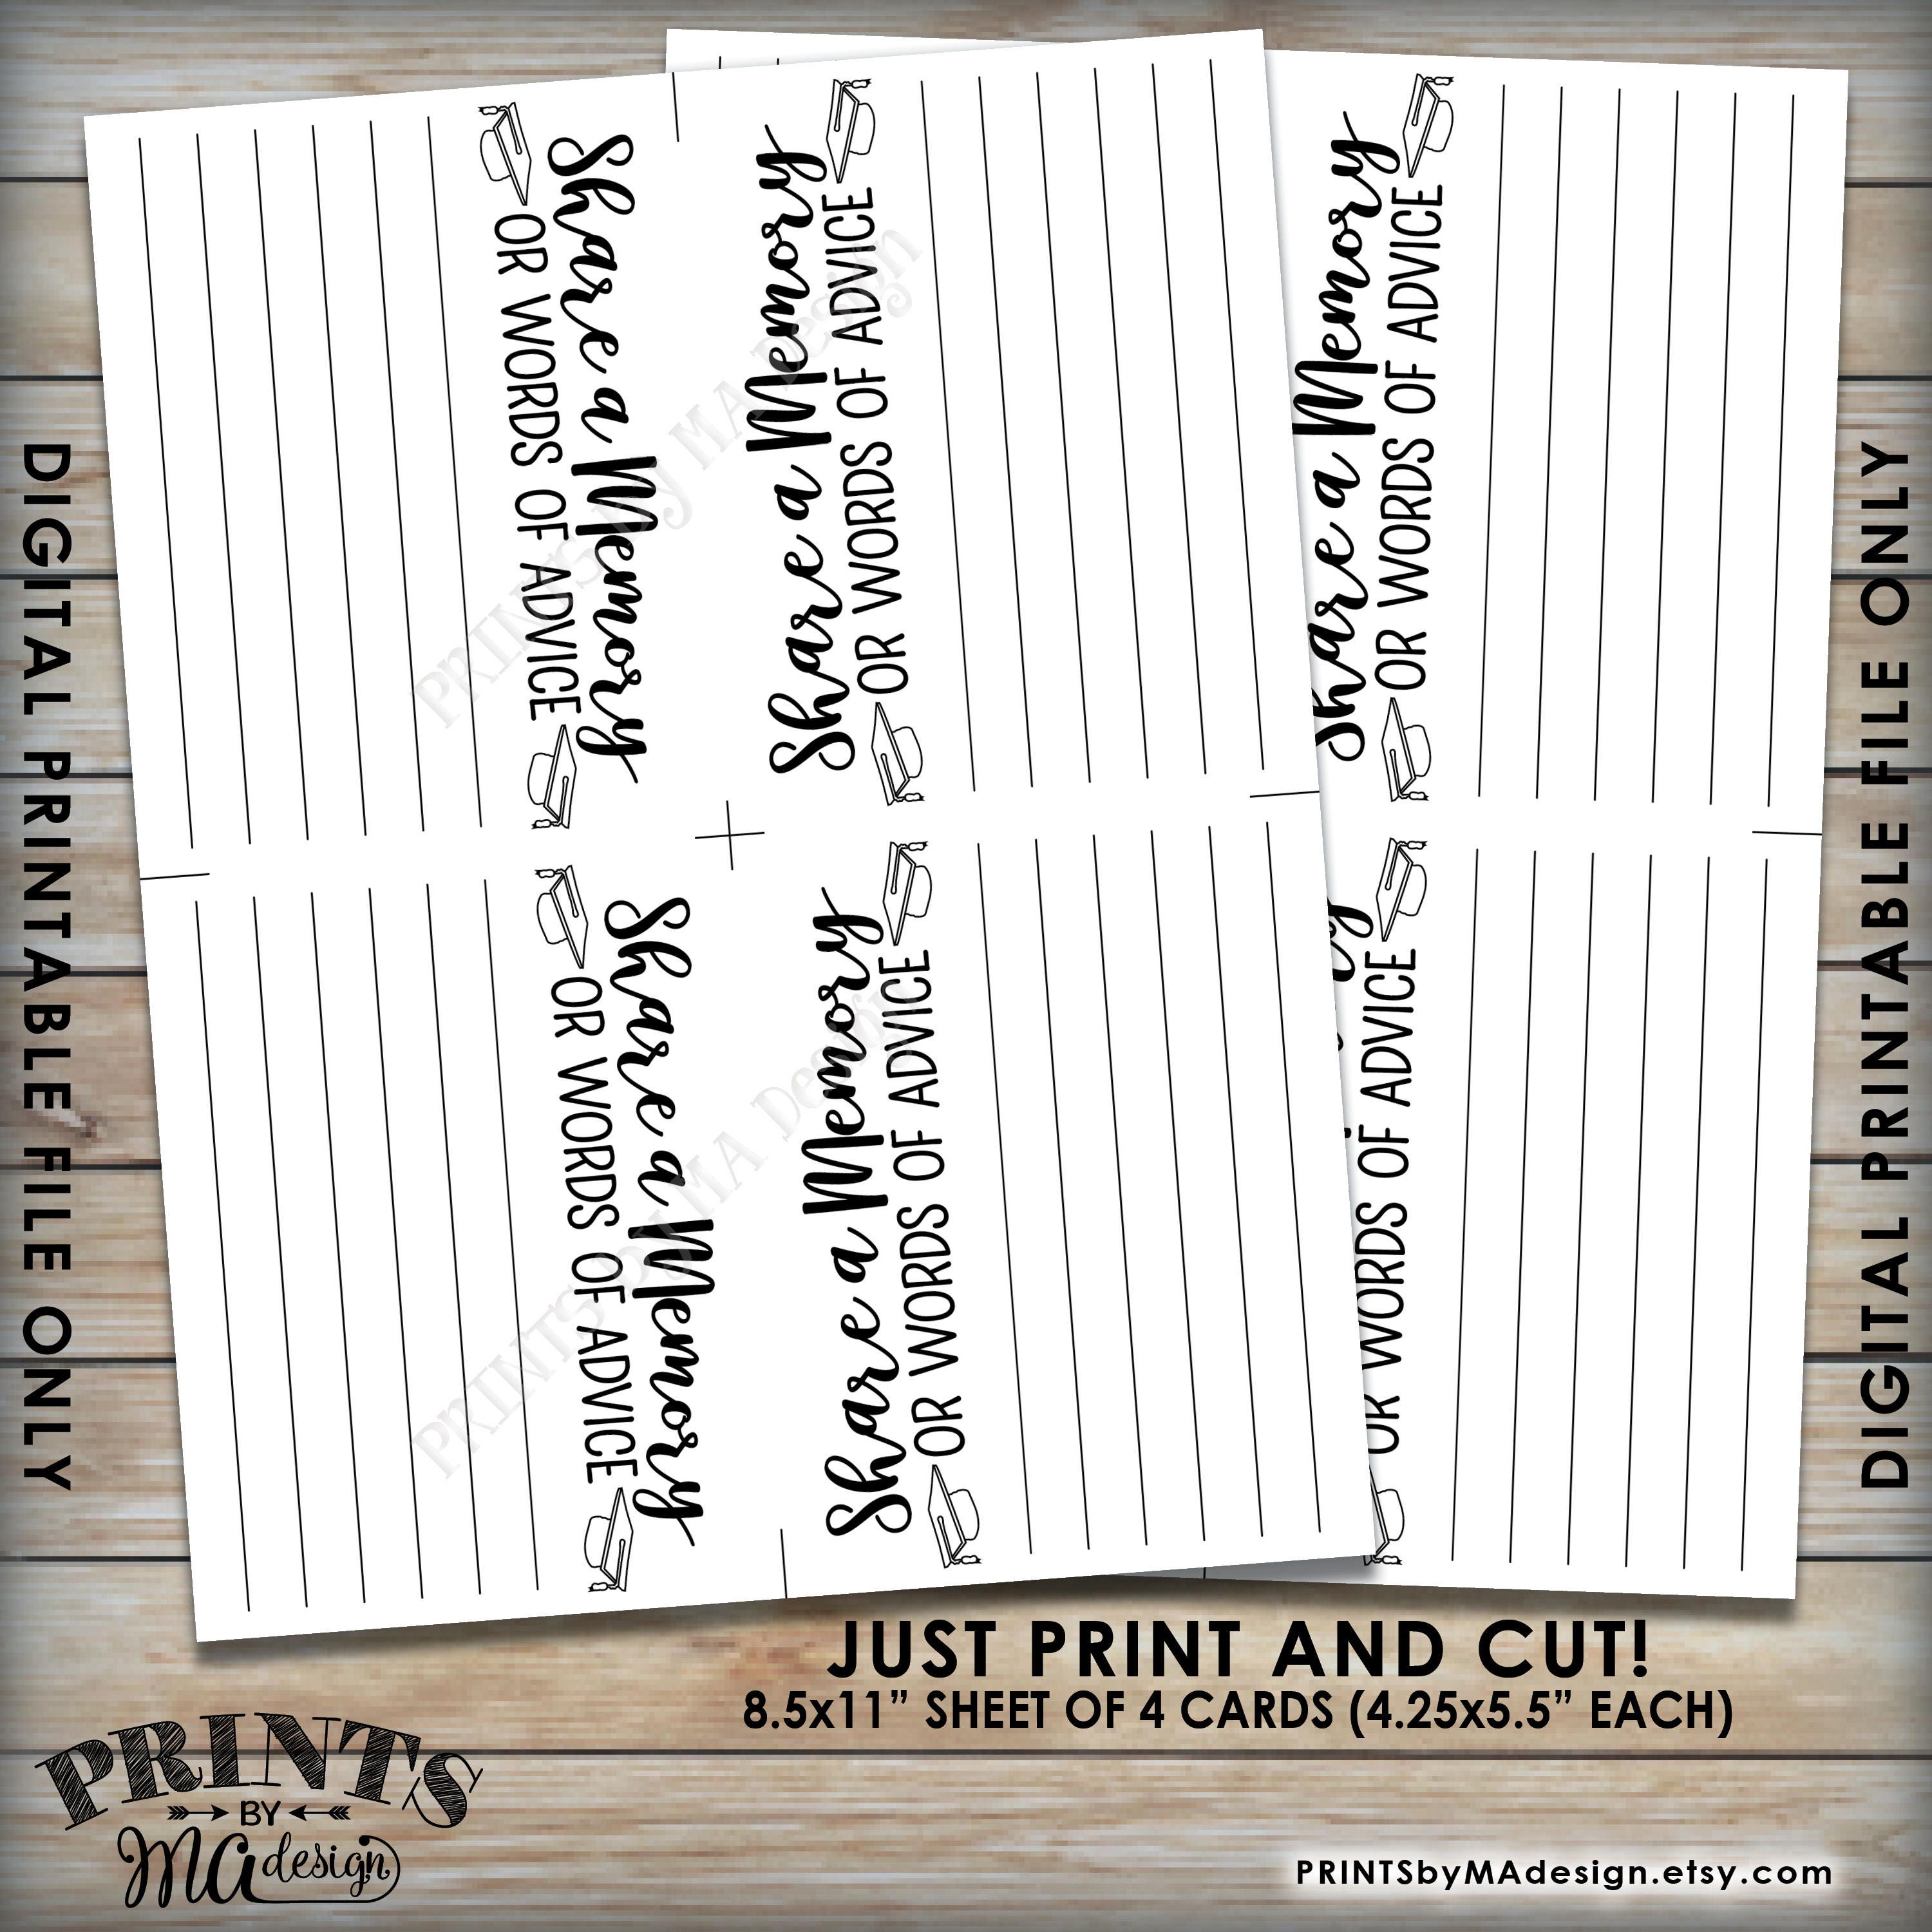 DIGITAL PRINTABLE FILE ONLY
Share a Memory
OR WORDS OF ADVICE
Share a Memory
OR WORDS OF ADVICE
Share a Memory
OR WORDS OF ADVICE
Share a Memory
OR WORDS OF ADVICE
PRINTS by MA Design
PRINTS by MA Design
Share a Memory
OR WORDS OF ADVICE
OR WORDS OF ADVICE
DIGITAL PRINTABLE FILE ONLY
JUST PRINT AND CUT!
8.5x11” SHEET OF 4 CARDS (4.25x5.5” EACH)
PRINTS
BY
MA design
PRINTSbyMAdesign.etsy.com